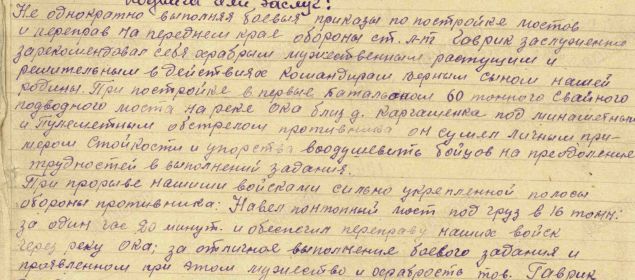 подвига или заслуг:
Не однократно выполняя боевыя приказы по постройке мостов
и переправ на переднем крае обороны ст. л-т Гаврик заслуженно
зарекомендовал себя храбрым мужественным растущим и
решительным в действиях командирам верным сыном нашей
родины. При постройке в первые баталь оном 60 тонного свайного
подводного моста на реке Ока близ д. Каргашенка под минаметным
и пулеметным обстрелом противника он сумел личным при-
мером стойкости и упорства воодушевить бойцов на преодоление
трудностей в выполнений задания.
При прорыве нашими войсками сильно укрепленной полосы
обороны противника: Навел понтонный мост под груз в 16 тонн:
за один час 20 минут. и обеспечил переправу наших войск
через реку Ока; за отличное выполнение боевого задания и
проявленном при этом мужество и храбрость тов. Гаврик